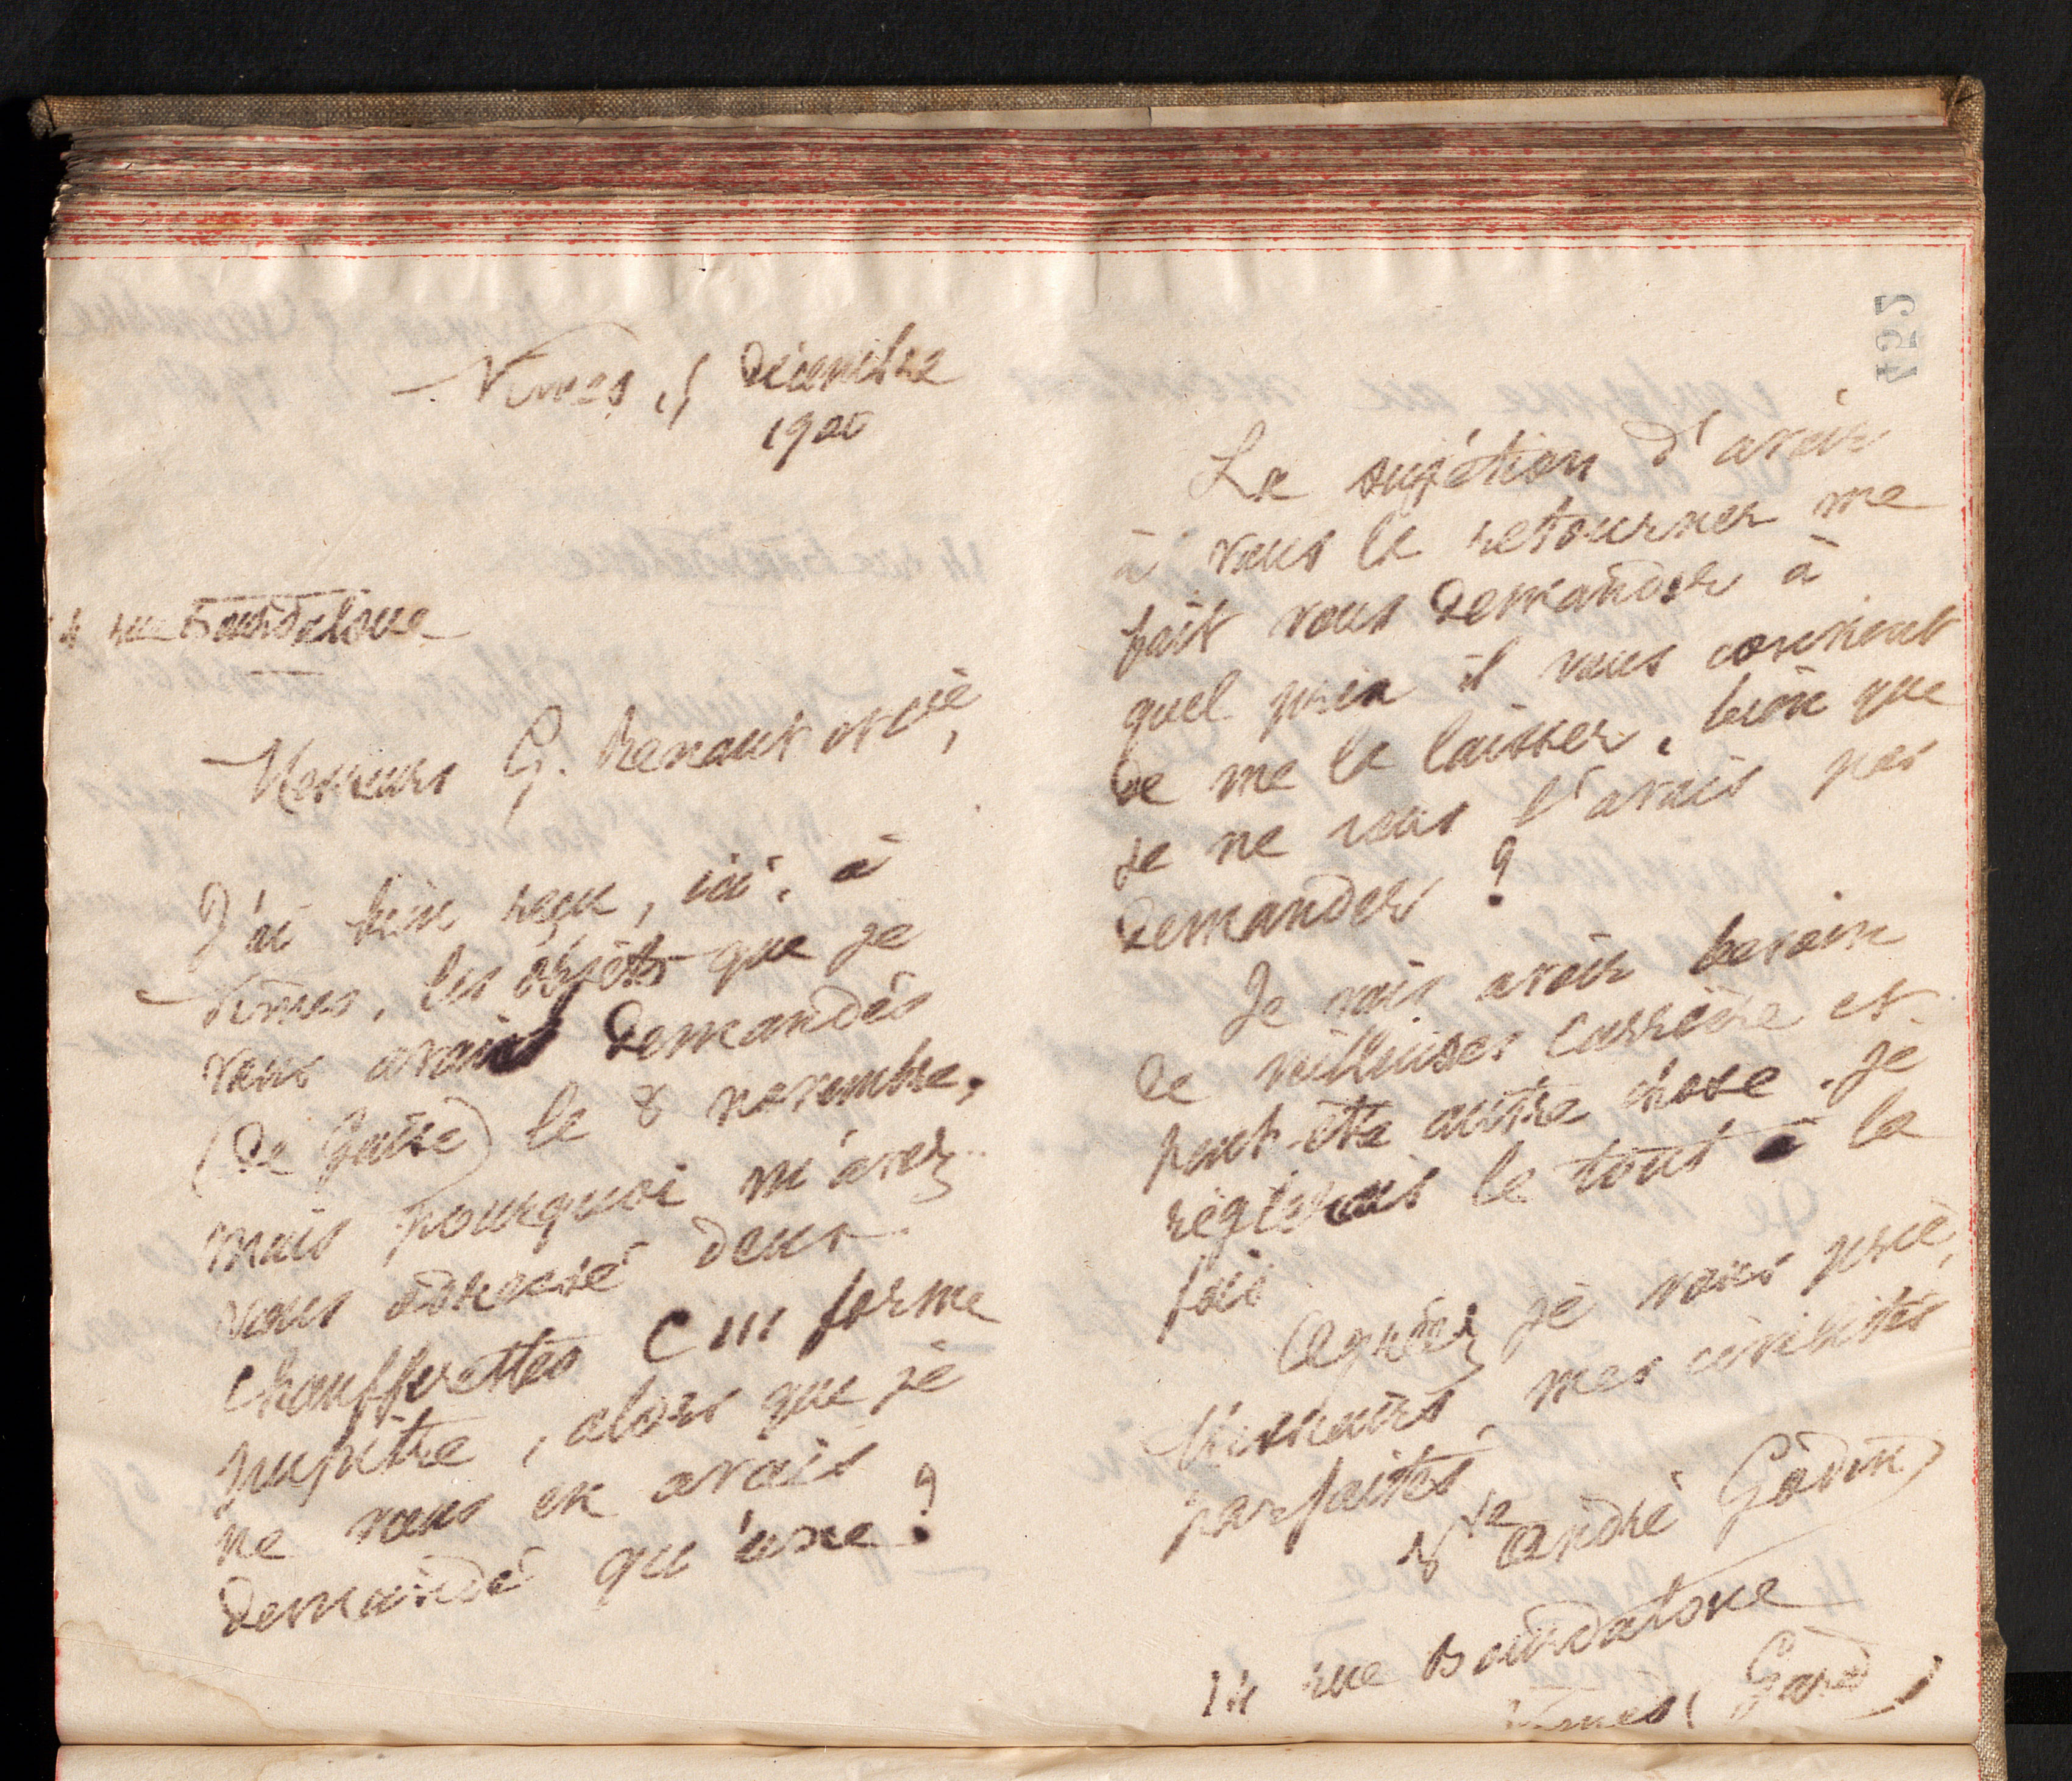 Nîmes, 5 décembre
1900
14 rue Bourdaloue
Messieurs G. Renaut et Cie,
J'ai bien reçu, ici, à
Nîmes, les objets que je
vous avais demandés
(de Guise) le 8 novembre,
mais pourquoi m'avez
vous adressé deux
chaufferettes C III forme
pupitre, alors que je
ne vous en avais
demandé qu'une ?
725
La sujétion d'avoir
à vous la retourner me
fait vous demander à
quel prix il vous convient
de me la laisser, bien que
je ne vous l'avais pas
demander ?
Je vais avoir besoin
de veilleuses Carrière et
peut-être autre chose. Je
règlerais le tout à la
fois
Agréez je vous prie,
Messieurs, mes civilités
parfaites
Vve André Godin
14 rue Bourdaloue
Nîmes (Gard)